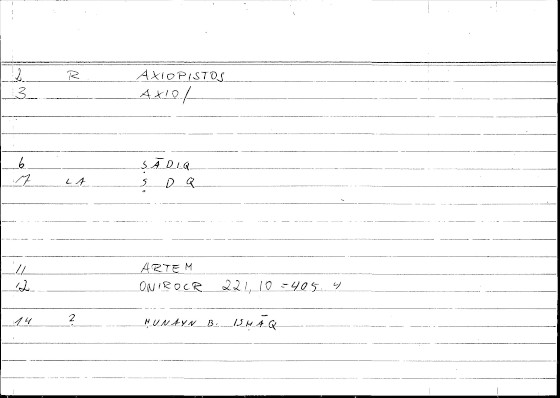 2 R AXIOPISTOS
3 AXIO/
6 ṢĀDIQ
7 LA Ṣ D Q
11 ARTEM
12 ONIROCR 221, 10 = 405. 4
14 2 ḤUNAYN B. ISḤĀQ